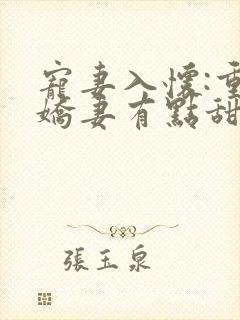 寵妻入懷:重
嬌妻有點甜
張玉泉